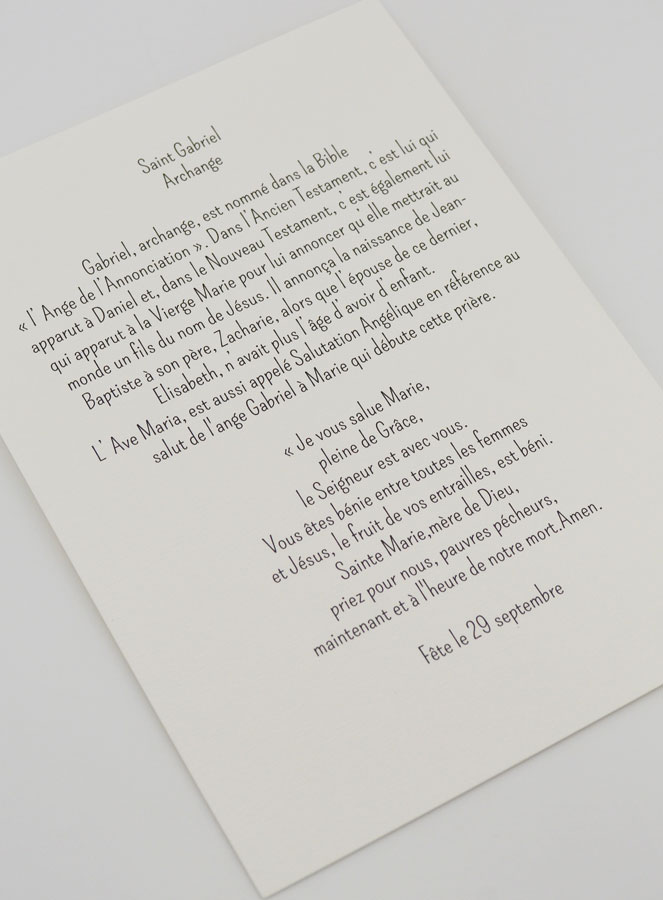 Saint Gabriel
Archange
Gabriel, archange, est nommé dans la Bible
« l' Ange de l'Annonciation ». Dans l'Ancien Testament, c' est lui qui
apparut à Daniel et, dans le Nouveau Testament, c' est également lui
qui apparut à la Vierge Marie pour lui annoncer qu' elle mettrait au
monde un fils du nom de Jésus. Il annonça la naissance de Jean-
Baptiste à son père, Zacharie, alors que l' épouse de ce dernier,
Elisabeth, n' avait plus l' âge d' avoir d' enfant.
L' Ave Maria, est aussi appelé Salutation Angélique en référence au
salut de l'ange Gabriel à Marie qui débute cette prière.
« Je vous salue Marie,
pleine de Grâce,
le Seigneur est avec vous.
Vous êtes bénie entre toutes les femmes
et Jésus, le fruit de vos entrailles, est béni.
Sainte Marie,mère de Dieu,
priez pour nous, pauvres pécheurs,
maintenant et à l'heure de notre mort.Amen.
Fête le 29 septembre